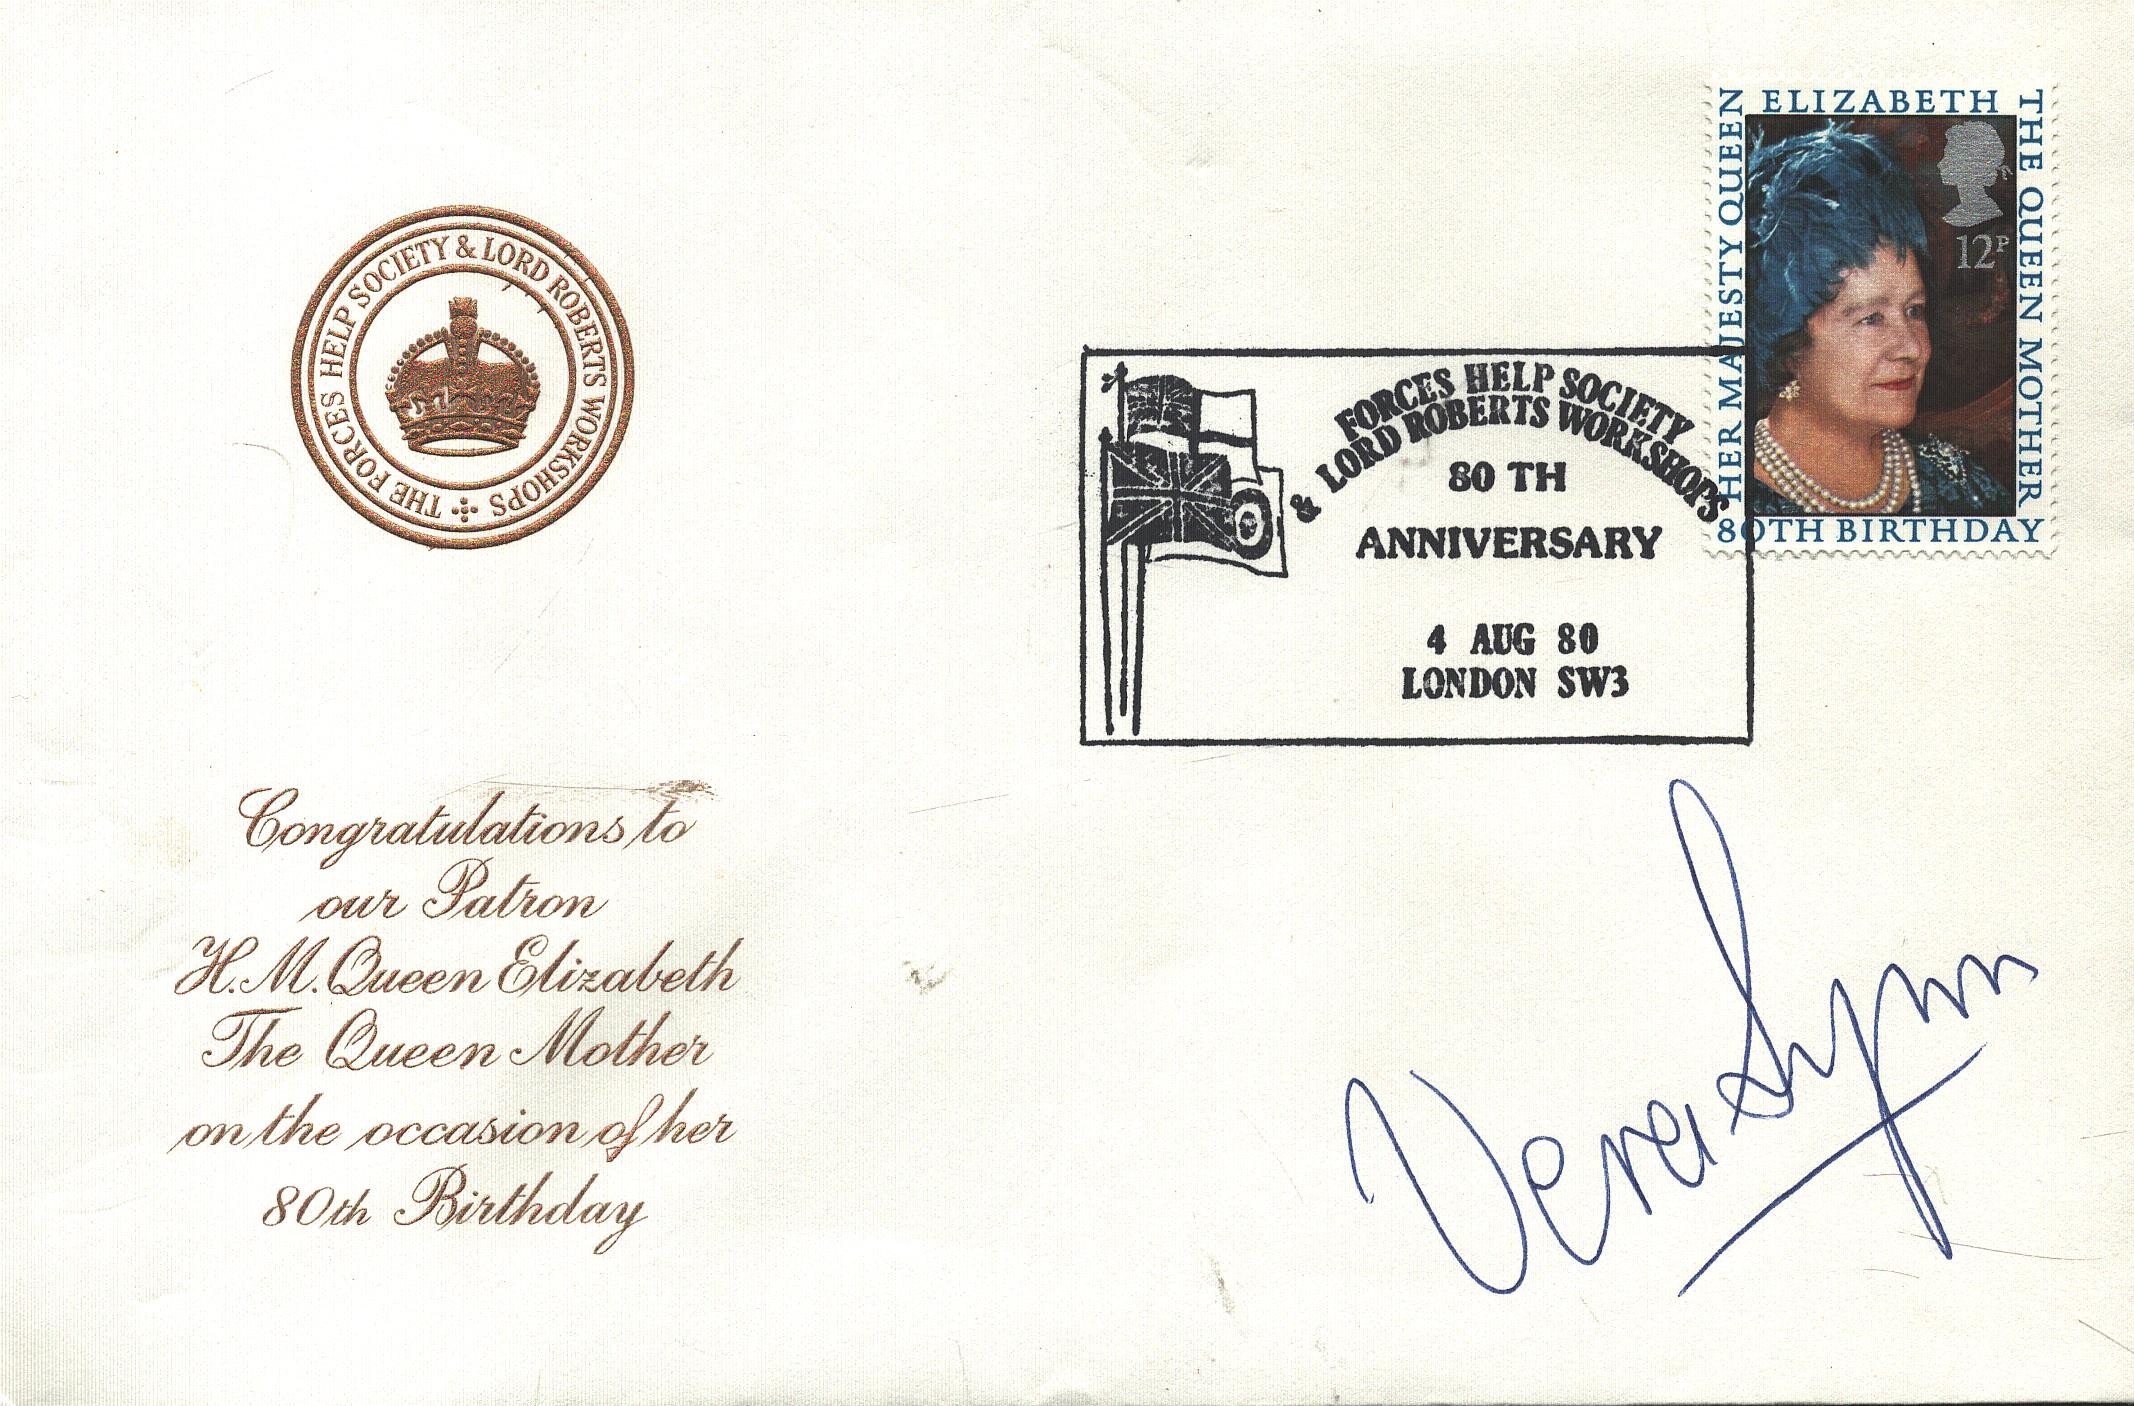 THE FORCES HELP SOCIETY & LORD ROBERTS WORKSHOPS
Congratulations to
our Patron
H.M. Queen Elizabeth
The Queen Mother
on the occasion of her
80th Birthday
FORCES HELP SOCIETY
& LORD ROBERTS WORKSHOPS
80 TH
ANNIVERSARY
4 AUG 80
LONDON SW3
HER MAJESTY QUEEN
ELIZABETH
THE QUEEN MOTHER
12P
80TH BIRTHDAY
Vera Lynn